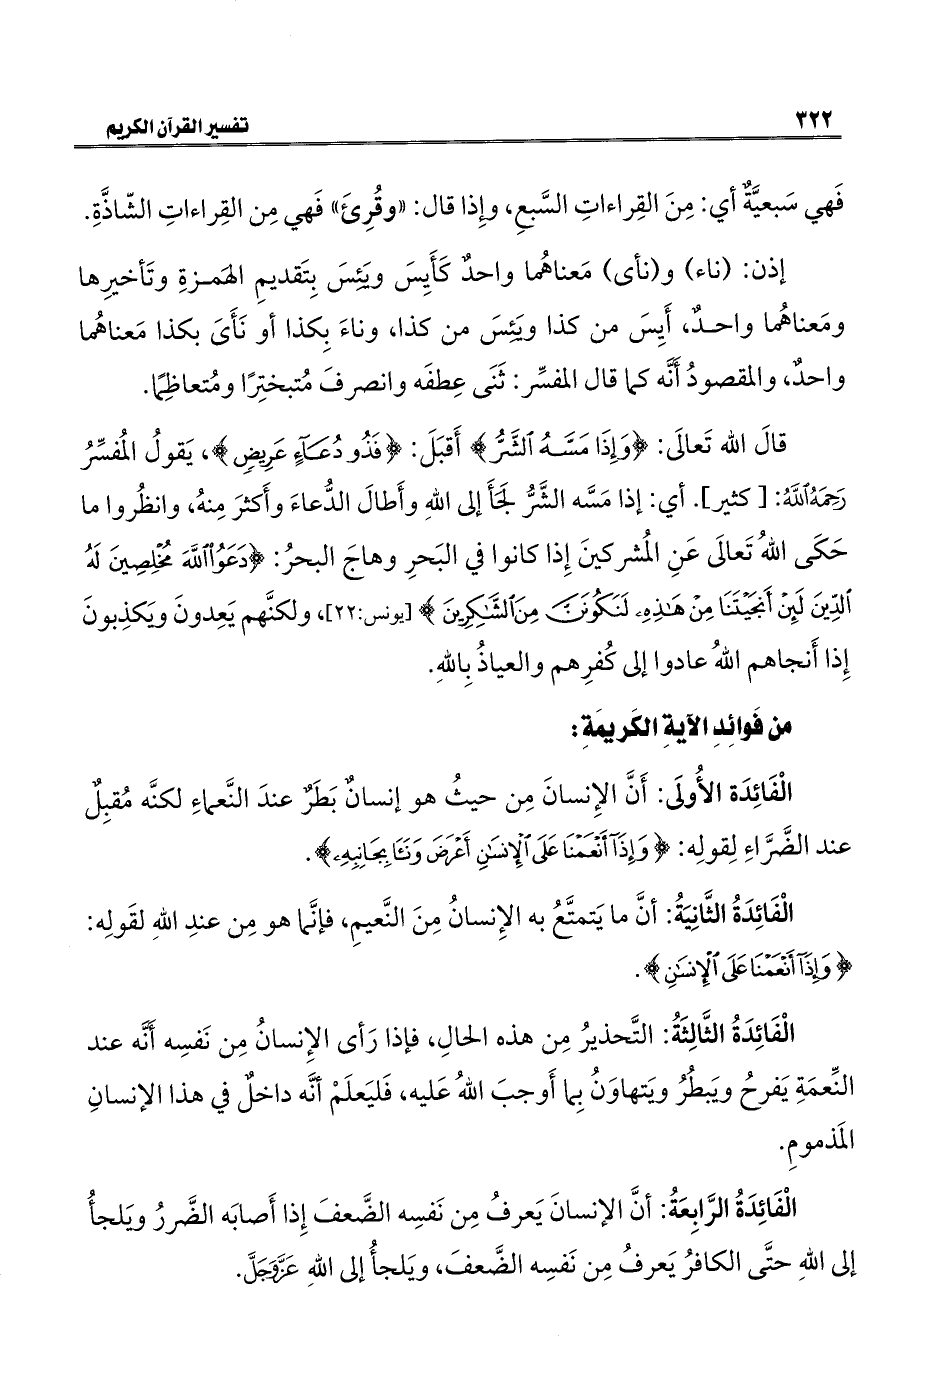 ٣٢٢
تفسير القرآن الكريم
فَهي سَبعيَّةٌ أي: مِنَ القِراءاتِ السَّبعِ، وإذا قال: «وقُرِئَ» فَهي مِن القِراءاتِ الشّاذَّةِ.
إذن: (ناء) و(نأى) مَعناهُما واحدٌ كَأَيِسَ ويَئِسَ بِتَقديمِ الهَمزةِ وتَأخيرِها
ومَعناهُما واحدٌ، أَيِسَ من كذا ويَئِسَ من كذا، وناءَ بِكذا أو نَأَىَ بكذا مَعناهُما
واحدٌ، والمَقصودُ أَنَّه كما قال المفسِّر: ثَنَى عِطفَه وانصرفَ مُتبخترًا ومُتعاظِمًا.
قالَ الله تَعالَى: ﴿وَإِذَا مَسَّهُ ٱلشَّرُّ﴾ أَقبَلَ: ﴿فَذُو دُعَآءٍ عَرِيضٍ﴾، يَقولُ المُفسِّرُ
رَحِمَهُ ٱللَّهُ: [كثير]. أي: إذا مَسَّه الشَّرُّ لَجَأَ إلى اللهِ وأَطالَ الدُّعاءَ وأَكثرَ مِنهُ، وانظُروا ما
حَكَى اللهُ تَعالَى عَنِ المُشركينَ إذا كانوا في البَحرِ وهاجَ البحرُ: ﴿دَعَوُا ٱللَّهَ مُخْلِصِينَ لَهُ
ٱلدِّينَ لَئِنْ أَنجَيْتَنَا مِنْ هَٰذِهِۦ لَنَكُونَنَّ مِنَ ٱلشَّٰكِرِينَ﴾ [يونس:٢٢]، ولكنَّهم يَعِدونَ ويَكذِبونَ
إِذا أَنجاهم اللهُ عادوا إلى كُفرِهم والعياذُ بِاللهِ.
من فَوائِدِ الآيةِ الكَريمَةِ:
الْفَائِدَة الأُولَى: أَنَّ الإنسانَ مِن حيثُ هو إنسانٌ بَطَرٌ عندَ النَّعماءِ لكنَّه مُقبلٌ
عند الضَّرَّاءِ لِقولِه: ﴿وَإِذَآ أَنْعَمْنَا عَلَى ٱلْإِنسَٰنِ أَعْرَضَ وَنَـَٔا بِجَانِبِهِۦ﴾.
الْفَائِدَةُ الثَّانِيَةُ: أنَّ ما يَتمتَّعُ به الإِنسانُ مِنَ النَّعيمِ، فإنَّما هو مِن عندِ اللهِ لقَولِه:
﴿وَإِذَآ أَنْعَمْنَا عَلَى ٱلْإِنسَٰنِ﴾.
الْفَائِدَةُ الثَّالِثَةُ: التَّحذيرُ مِن هذه الحالِ، فإذا رَأى الإِنسانُ مِن نَفسِه أَنَّه عند
النِّعمَةِ يَفرحُ ويَبطُرُ ويَتهاوَنُ بِما أَوجبَ اللهُ عَليه، فَليَعلَمْ أنَّه داخلٌ في هذا الإنسانِ
المَذمومِ.
الْفَائِدَةُ الرَّابِعَةُ: أنَّ الإنسانَ يَعرفُ مِن نَفسِه الضَّعفَ إذا أَصابَه الضَّررُ ويَلجأُ
إلى اللهِ حتَّى الكافرُ يَعرفُ مِن نَفسِه الضَّعفَ، ويَلجأُ إلى اللهِ عَزَّوَجَلَّ.